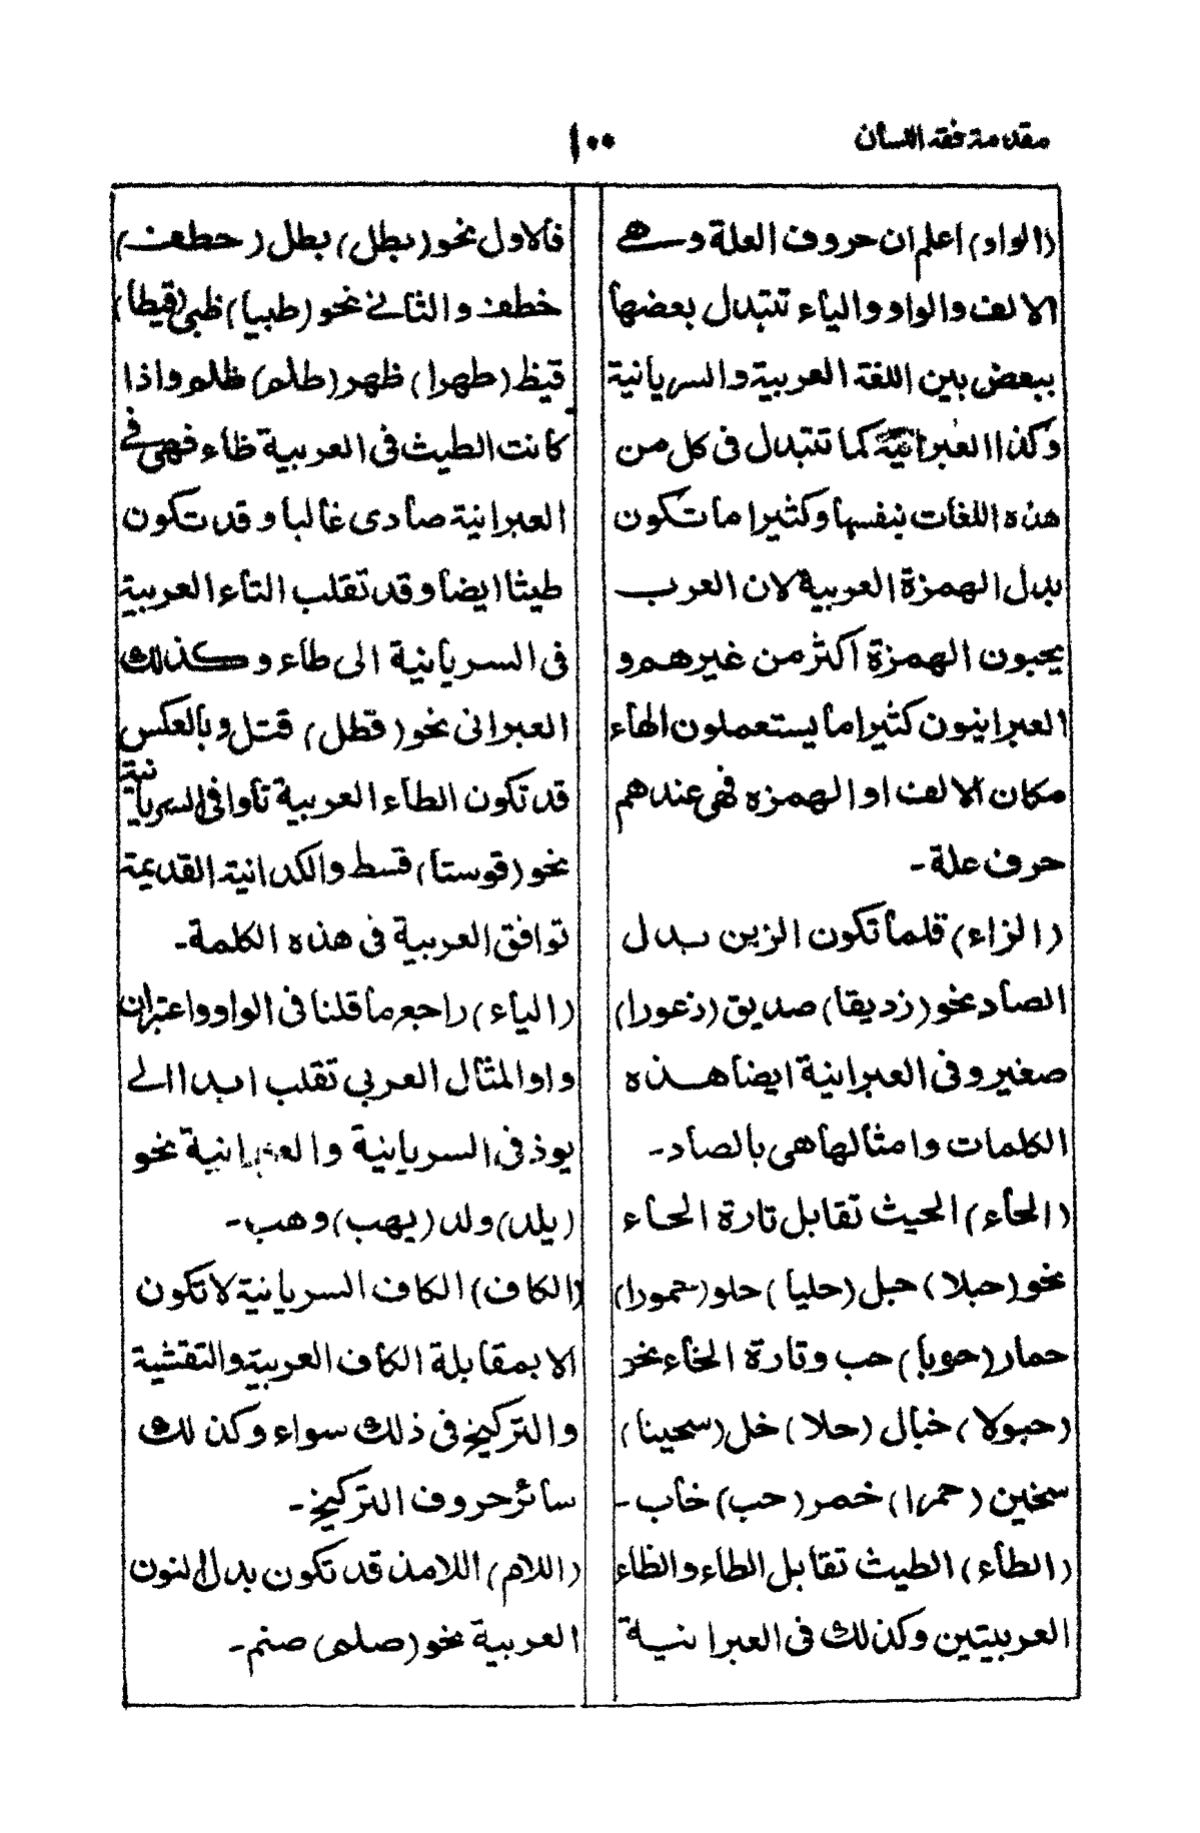 مقدمة فقه اللسان
١٠٠
(الواو) اعلم ان حروف العلة وهے
الالف والواو والياء تتبدل بعضها
ببعض بين اللغة العربية والسريانية
وكذا العبرانية كما تتبدل فى كل من
هذه اللغات نيفسها وكثيرا ما تكون
بدل الهمزة العربية لان العرب
يحبون الهمزة اكثر من غيرهم و
العبرانيون كثيرا ما يستعملون الهاء
مكان الالف او الهمزه فهى عندهم
حرف علة-
(الزاء) قلما تكون الزين بدل
الصاد نحو (زديقا) صديق (زعورا)
صغير وفى العبرانية ايضا هذه
الكلمات وامثالها هى بالصاد-
(الحاء) الحيث تقابل تارة الحاء
نحو (حبلا) حبل (حليا) حلو (حمورا)
حمار (حوبا) حب وتارة الخاء نحو
(حبولا) خبال (حلا) خل (سحينا)
سخين (حمرا) خمر (حب) خاب-
(الطاء) الطيث تقابل الطاء والظاء
العربيتين وكذلك فى العبرانية
فالاول نحو (بطل) بطل (حطف)
خطف والثانے نحو (طبيا) ظبى (قيطا)
قيظ (طهرا) ظهر (طلم) ظلم واذا
كانت الطيث فى العربية ظاء فهى فے
العبرانية صادى غالبا وقد تكون
طيثا ايضا وقد تقلب التاء العربية
فى السريانية الى طاء وكذلك
العبرانى نحو (قطل) قتل وبالعكس
قد تكون الطاء العربية تاوا فى السريانية
نحو (قوستا) قسط والكدانية القديمة
توافق العربية فى هذه الكلمة-
(الياء) راجع ما قلنا فى الواو واعتبر ان
واو المثال العربى تقلب ابدا الے
يوذ فى السريانية والعبرانية نحو
(يلد) ولد (يهب) وهب-
(الكاف) الكاف السريانية لا تكون
الا بمقابلة الكاف العربية والتقشية
والتركيخ فى ذلك سواء وكذلك
سائر حروف التركيخ-
(اللام) اللامذ قد تكون بدل النون
العربية نحو (صلم) صنم-